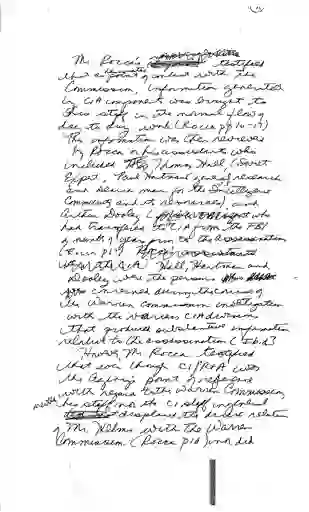 Mr. Rocca testified
that as point of contact with the
Commission, information generated
by CIA components was brought to
his staff in the normal flow of
day to day work (Rocca pp 16-17)
The information was then reviewed
by Rocca or his assistants who
included Thomas Hall (Soviet
Expert, Paul Hartman general research
and search man for the Intelligence
Community and its resources), and
Arthur Dooley (who
had transferred to CIA from the FBI
of months of years prior to the assassination
(Rocca p17) 
Hall, Hartman and
Dooley were the persons
concerned during the course of
the Warren Commission investigation
with the various CIA divisions
that produced substantive information
related to the assassination (Ibid)
However, Mr. Rocca testified
that even though CI/R&A was
the Agency's point of reference
with regard to the Warren Commission,
neither his staff nor the CI staff in general
displaced the direct relation
of Mr. Helms with the Warren
Commission (Rocca p18) nor did